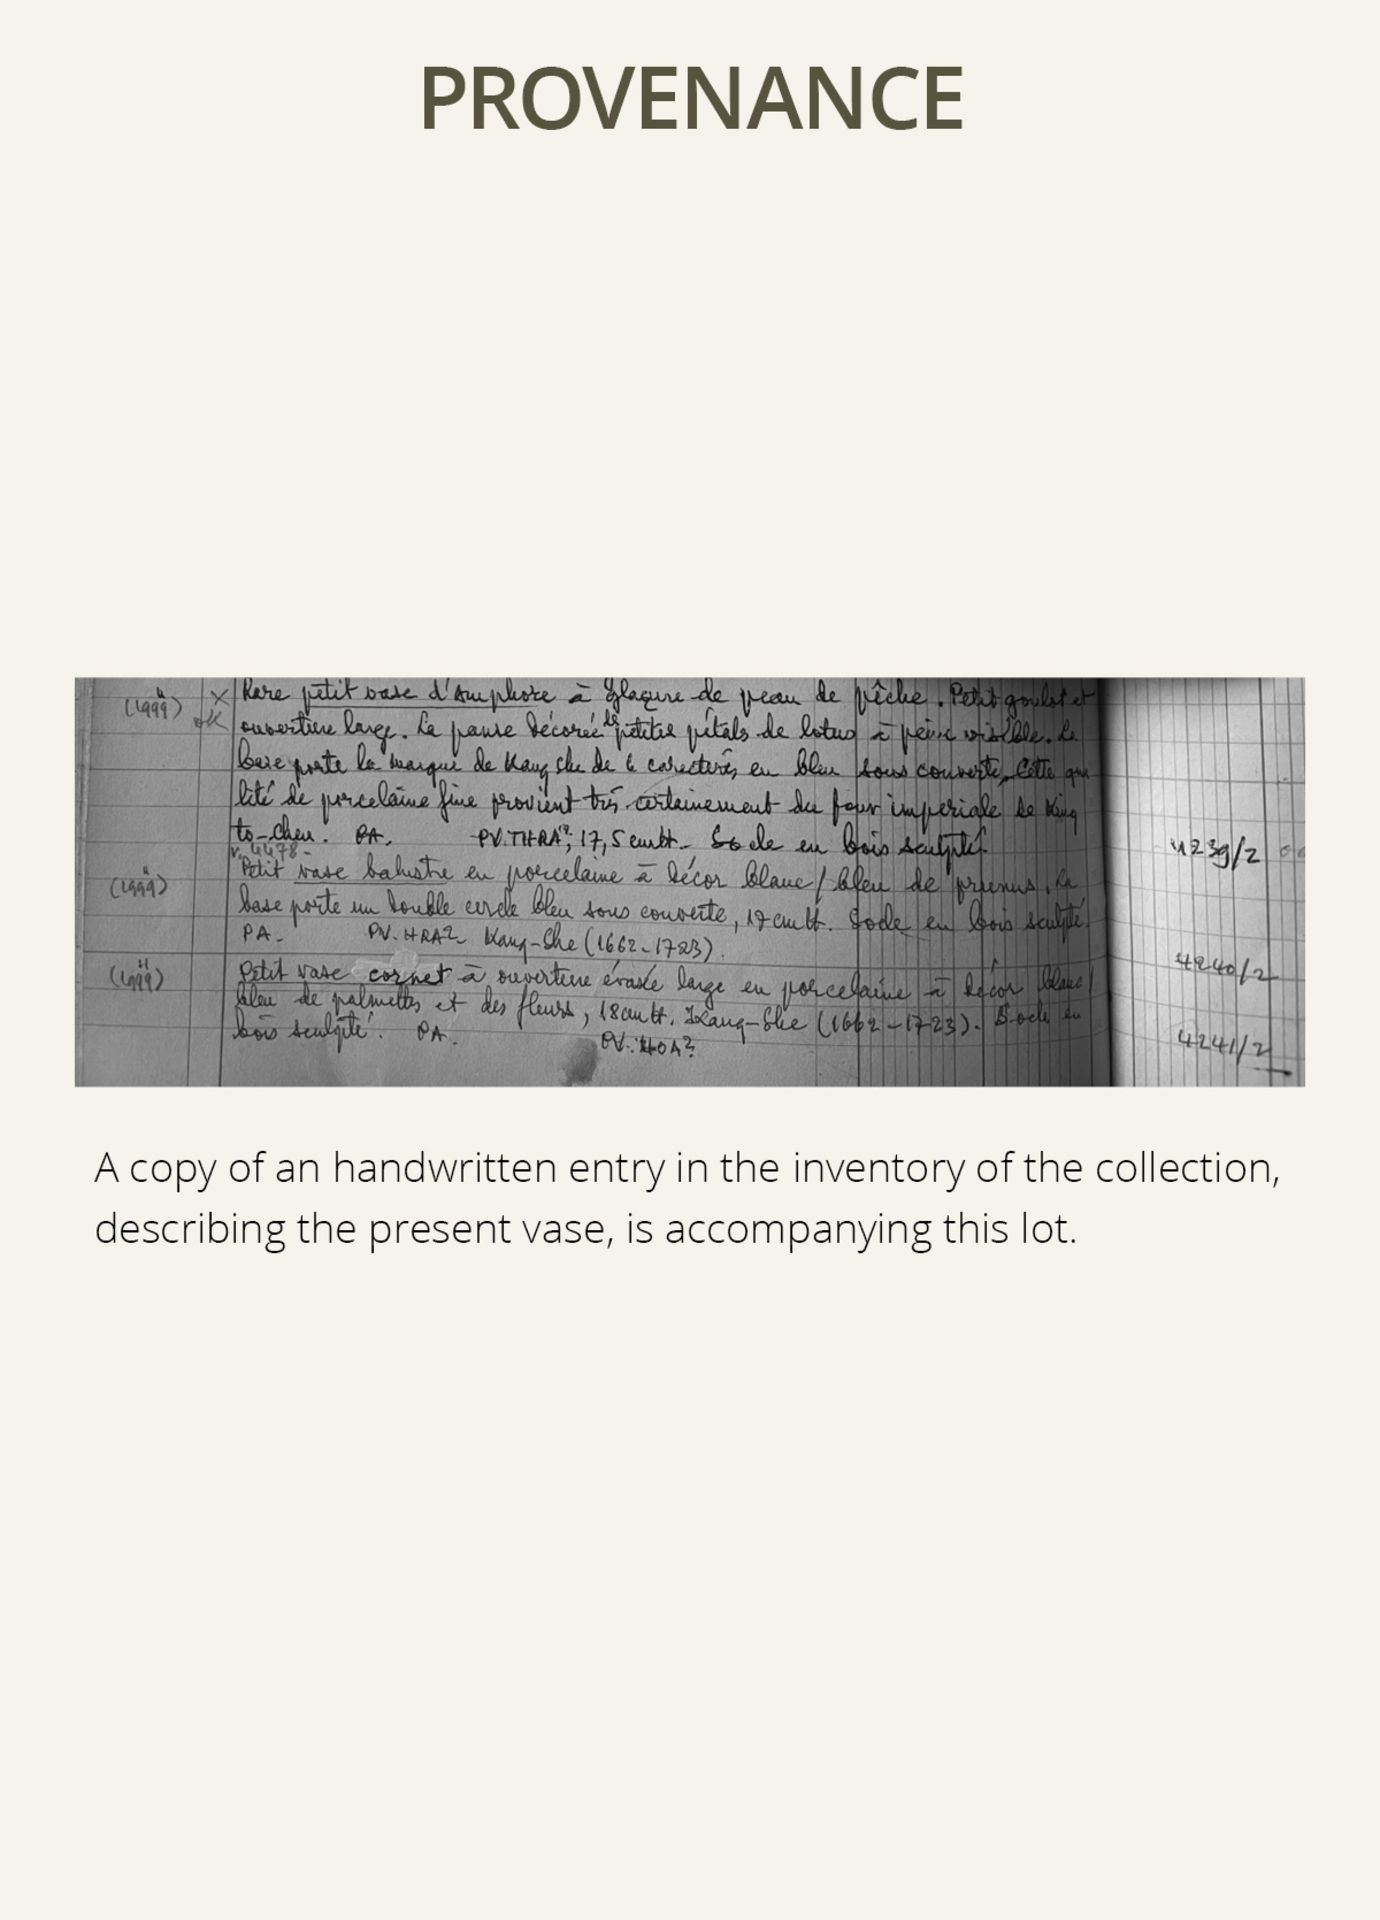 PROVENANCE
(1999) X Rare petit vase d'Amphore à glaçure de peau de pêche. Petit goulot et
ok ouverture large. La panse décorée de petites pétals de lotus à peine visible. La
base porte la marque de Kang She de 6 caractères en bleu sous couverte. Cette qua
lité de porcelaine fine provient très certainement du four imperiale de King
to-cheu. PA. PV.THRA 17,5 cm ht. Socle en bois sculpté 4239/2
v. 4478-
(1999) Petit vase balustre en porcelaine à décor blanc/bleu de prunus. La
base porte un double cercle bleu sous couverte, 17 cm ht. Socle en bois sculpté.
PA. PV. HRA2 Kang-She (1662-1723). 4240/2
(1999) Petit vase cornet à ouverture évasée large en porcelaine à décor blanc/
bleu de palmettes et des fleurs, 18 cm ht. Kang-She (1662-1723). Socle en
bois sculpté. PA. PV. HOA? 4241/2
A copy of an handwritten entry in the inventory of the collection,
describing the present vase, is accompanying this lot.